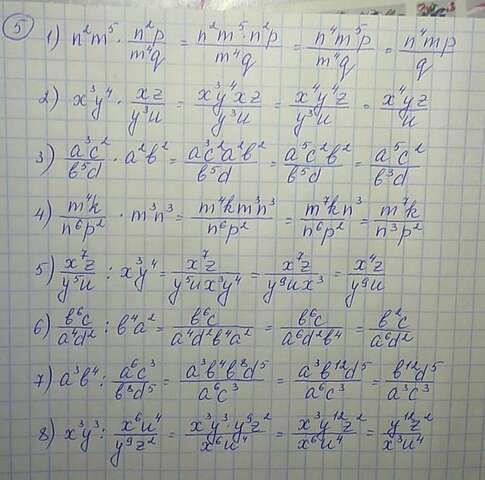 5 1) n²m⁵ · n²p/m⁴q = n²m⁵·n²p/m⁴q = n⁴m⁵p/m⁴q = n⁴mp/q
2) x³y⁴ · xz/y³u = x³y⁴xz/y³u = x⁴y⁴z/y³u = x⁴yz/u
3) a³c²/b⁵d · a²b² = a³c²a²b²/b⁵d = a⁵c²b²/b⁵d = a⁵c²/b³d
4) m⁴k/n⁶p² · m³n³ = m⁴km³n³/n⁶p² = m⁷kn³/n⁶p² = m⁷k/n³p²
5) x⁷z/y⁵u : x³y⁴ = x⁷z/y⁵ux³y⁴ = x⁷z/y⁹ux³ = x⁴z/y⁹u
6) b⁶c/a⁴d² : b⁴a² = b⁶c/a⁴d²b⁴a² = b⁶c/a⁶d²b⁴ = b²c/a⁶d²
7) a³b⁴ : a⁶c³/b⁸d⁵ = a³b⁴b⁸d⁵/a⁶c³ = a³b¹²d⁵/a⁶c³ = b¹²d⁵/a³c³
8) x³y³ : x⁶u⁴/y⁹z² = x³y³·y⁹z²/x⁶u⁴ = x³y¹²z²/x⁶u⁴ = y¹²z²/x³u⁴